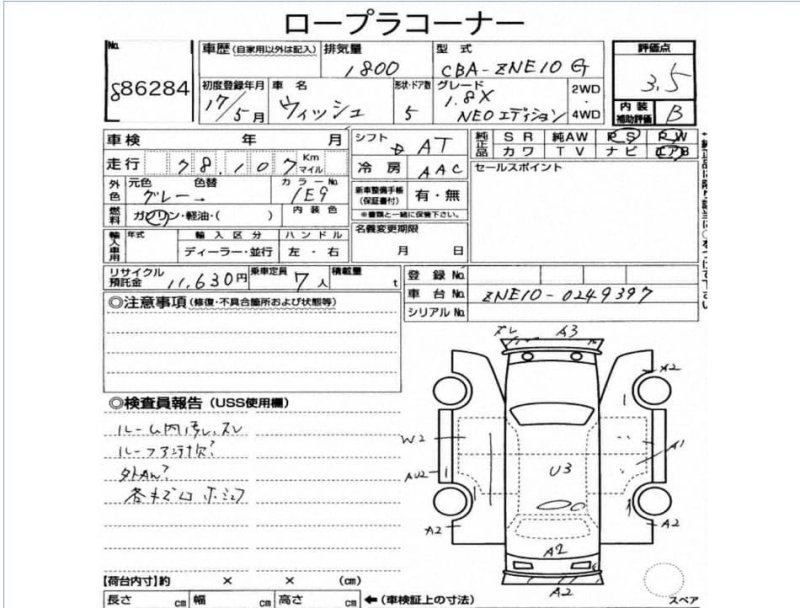 ロープラコーナー
No.
86284
車歴 (自家用以外は記入)
排気量
1800
型式
CBA-ZNE10G
評価点
3.5
初度登録年月
17/5月
車名
ウィッシュ
形状・ドア数
5
グレード
1.8X
NEOエディション
2WD
・
4WD
内装
補助評価
B
車検 年 月
シフト
AT
純正品
SR 純AW PS PW
カワ TV ナビ エアB
走行 78,107 Km
マイル
冷房
AAC
セールスポイント
外色
元色 色替
グレー
カラーNo.
1E9
新車整備手帳
(保証書付)
有・無
※書類と一緒に保管下さい。
燃料
ガソリン・軽油・( )
内装色
輸入車用
年式
輸入区分
ディーラー・並行
ハンドル
左・右
名義変更期限
月 日
リサイクル
預託金
11,630円
乗車定員
7人
積載量
t
登録No.
車台No.
ZNE10-0249397
シリアルNo.
◎注意事項 (修復・不具合箇所および状態等)
◎検査員報告 (USS使用欄)
ルーム内汚レ、スレ
ルーフアンテナ欠?
外AW?
ズレ
A3
A2
W2
A1
AU2
U3
A2
A2
A2
A2
【荷台内寸】約 × × (cm)
長さ cm 幅 cm 高さ cm
←(車検証上の寸法)
スペア